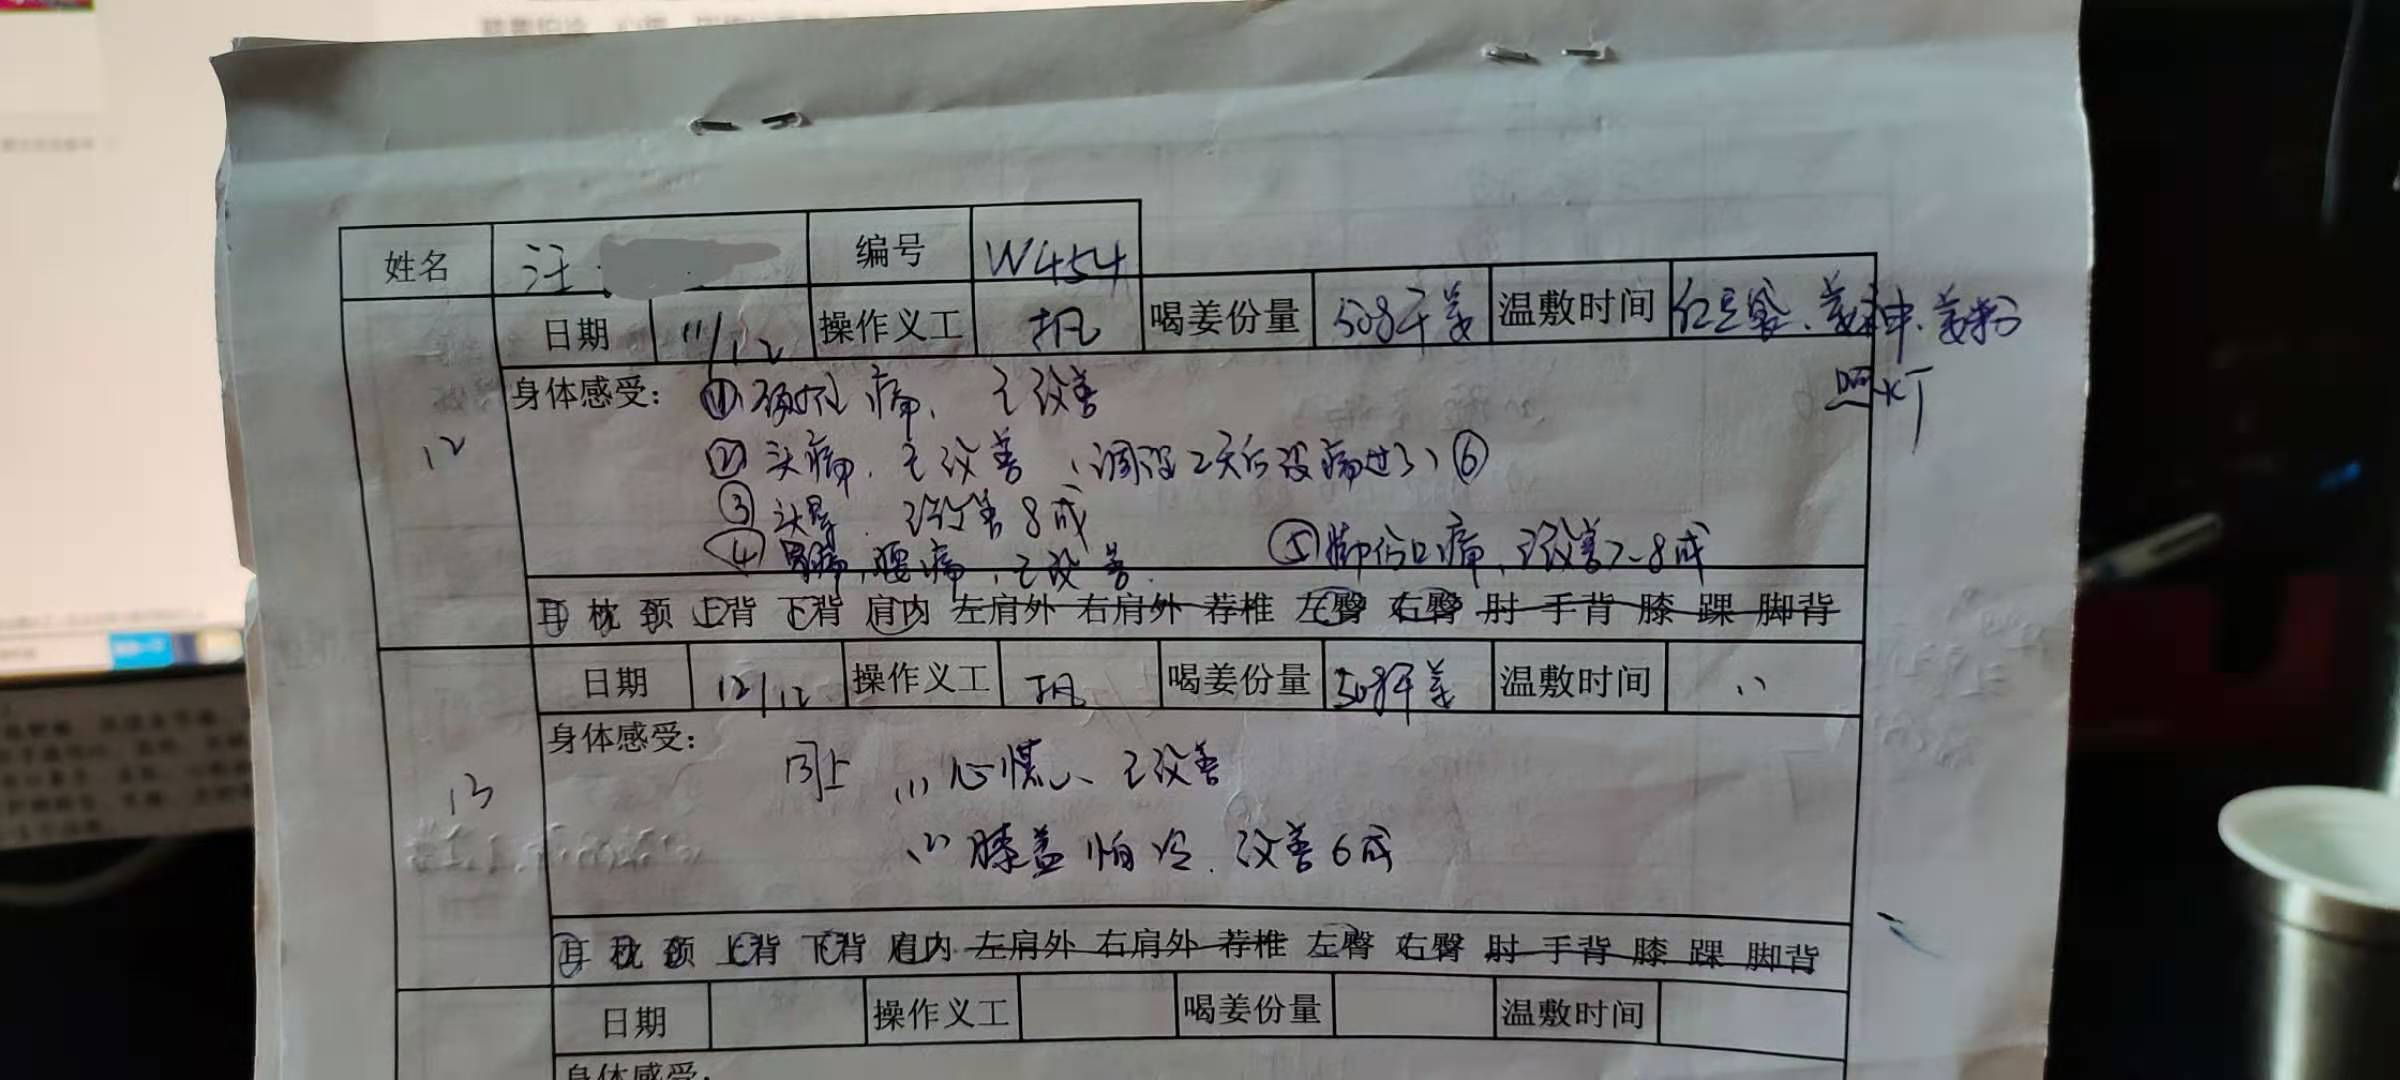 姓名 汪 编号 W454
日期 11/12 操作义工 喝姜份量 50g干姜 温敷时间 红豆袋、姜粉
照灯
12
身体感受: ① 痛、已改善
② 头痛、已改善 (调理2天后没痛过了) ⑥
③ 头晕、已改善8成
④ 胃痛,腰痛,已改善. ⑤脚伤口痛,已改善7-8成
耳 枕 颈 上背 下背 肩内 左肩外 右肩外 荐椎 左臀 右臀 肘 手背 膝 踝 脚背
日期 12/12 操作义工 喝姜份量 50g干姜 温敷时间 〃
13
身体感受:
同上 (1) 心慌、已改善
(2) 膝盖怕冷.改善6成
耳 枕 颈 上背 下背 肩内 左肩外 右肩外 荐椎 左臀 右臀 肘 手背 膝 踝 脚背
日期 操作义工 喝姜份量 温敷时间
身体感受: